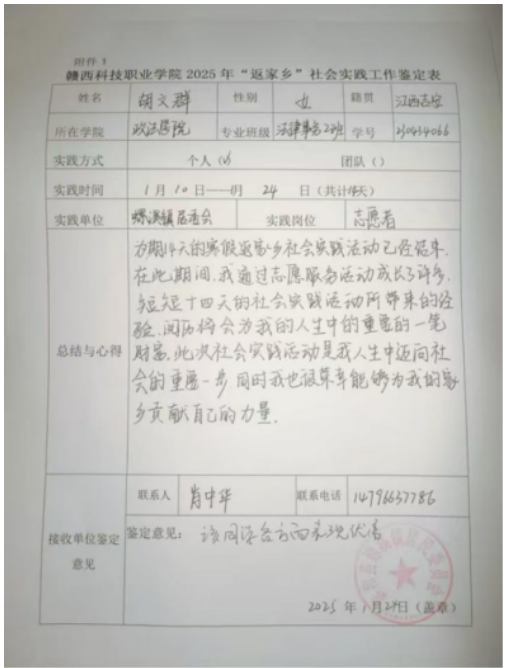 附件1
赣西科技职业学院2025年“返家乡”社会实践工作鉴定表
姓名 胡文群 性别 女 籍贯 江西吉安
所在学院 政法学院 专业班级 法律事务2班 学号 230434066
实践方式 个人(√) 团队()
实践时间 1月10日——1月24日(共计14天)
实践单位 螺溪镇居委会 实践岗位 志愿者
总结与心得
为期14天的寒假返家乡社会实践活动已经结束.
在此期间,我通过志愿服务活动成长了许多,
短短十四天的社会实践活动所带来的经
验,阅历将会为我的人生中的重要的一笔
财富.此次社会实践活动是我人生中迈向社
会的重要一步.同时我也很荣幸能够为我的家
乡贡献自己的力量.
接收单位鉴定意见
联系人 肖中华 联系电话 14796637786
鉴定意见: 该同学各方面表现优秀
2025年1月24日(盖章)